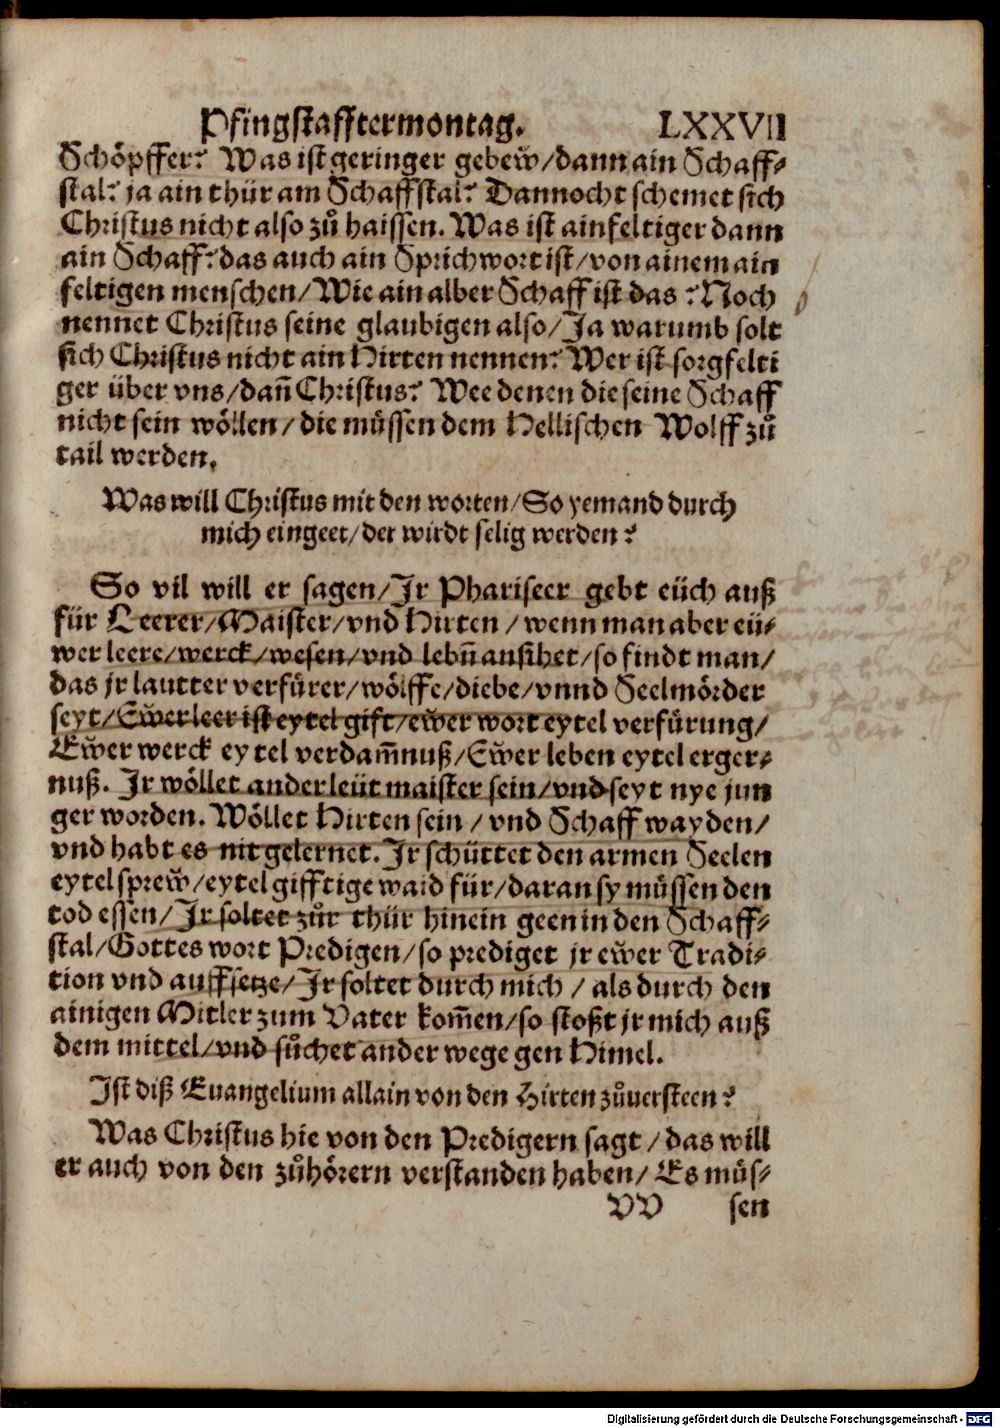 Pfingstafftermontag. LXXVII
Schöpffer? Was ist geringer gebew̃/dann ain Schaff-
stal? ja ain thür am Schaffstal? Dannocht schemet sich
Christus nicht also zů haissen. Was ist ainfeltiger dann
ain Schaff? das auch ain Sprichwort ist/von ainem ain
feltigen menschen/Wie ain alber Schaff ist das? Noch
nennet Christus seine glaubigen also/Ja warumb solt
sich Christus nicht ain Hirten nennen? Wer ist sorgfelti
ger über vns/dañ Christus? Wee denen die seine Schaff
nicht sein wöllen/die müssen dem Hellischen Wolff zů
tail werden.
Was will Christus mit den worten/So yemand durch
mich eingeet/der wirdt selig werden?
So vil will er sagen/Jr Phariseer gebt eüch auß
für Leerer/Maister/vnd Hirten/wenn man aber eü-
wer leere/werck/wesen/vnd lebñ ansihet/so findt man/
das jr lautter verfürer/wölffe/diebe/vnnd Seelmörder
seyt/Ew̃er leer ist eytel gift/ew̃er wort eytel verfürung/
Ew̃er werck eytel verdam̃nuß/Ew̃er leben eytel erger-
nuß. Jr wöllet ander leüt maister sein/vnd seyt nye jun
ger worden. Wöllet Hirten sein/vnd Schaff wayden/
vnd habt es nit gelernet. Jr schüttet den armen Seelen
eytel sprew̃/eytel gifftige waid für/daran sy müssen den
tod essen/Jr soltet zůr thür hinein geen in den Schaff-
stal/Gottes wort Predigen/so prediget jr ew̃er Tradi-
tion vnd auffsetze/Jr soltet durch mich/als durch den
ainigen Mitler zum Vater kom̃en/so stoßt jr mich auß
dem mittel/vnd sůchet ander wege gen Himel.
Ist diß Euangelium allain von den Hirten zůuersteen?
Was Christus hie von den Predigern sagt/das will
er auch von den zůhörern verstanden haben/Es müs-
VV sen
Digitalisierung gefördert durch die Deutsche Forschungsgemeinschaft - DFG